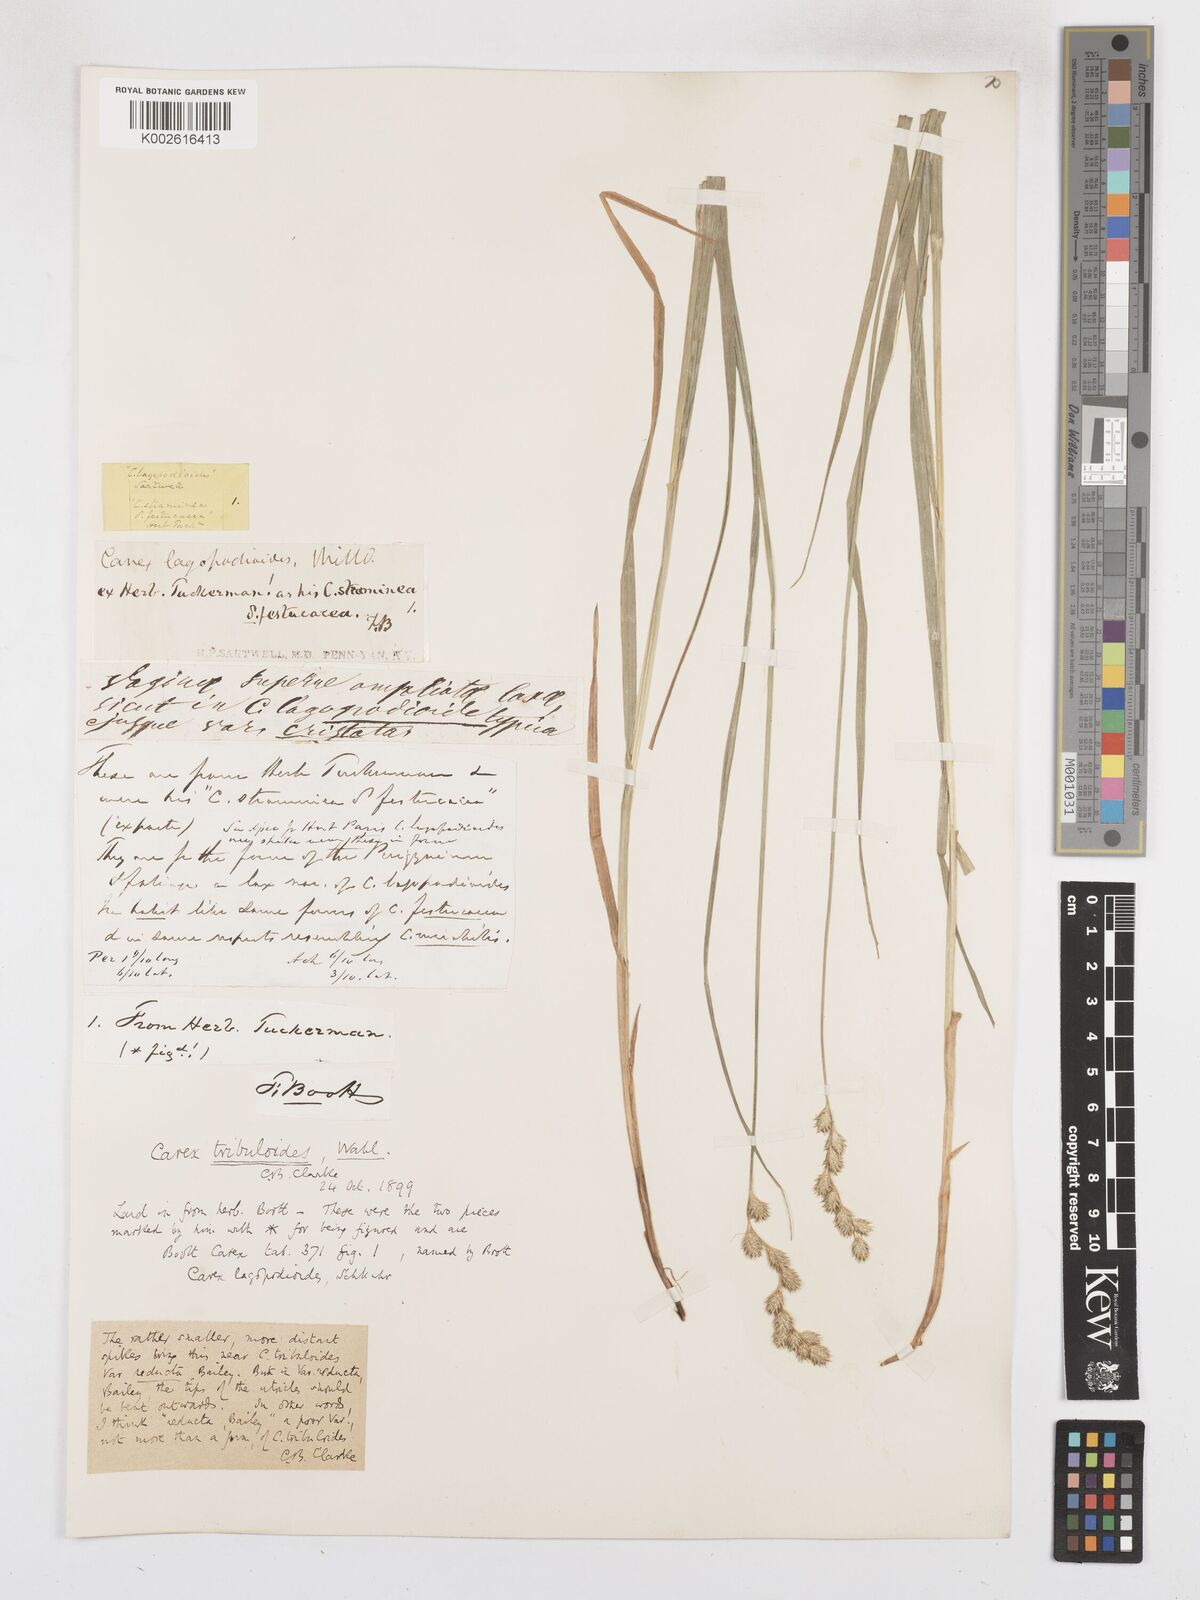 ROYAL BOTANIC GARDENS KEW
K002616413
"C. lagopodioides"
Sartwell
1.
"C. straminea
δ. festucacea"
Carex lagopodioides, Willd.
ex Herb. Tuckerman! as his C. straminea
δ. festucacea. 1.
F.B
H.P. SARTWELL, M.D. PENN-YAN, N.Y.
Vaginæ superne ampliatæ laxæ,
sicut in C. lagopodioide typica
ejusque vars cristatas
These are from Herb Tuckerman &
were his "C. straminea δ festucacea"
(ex parte)
They are fr the form of the Perigynium
& foliage a lax var. of C. lagopodioides
the habit like some forms of C. festucacea
& in some respects resembling C. mirabilis.
Per 1 6/10 long
6/10 lat.
Ach 6/10 long
3/10. lat.
1. From Herb. Tuckerman.
(* figd.!)
F. Boott
Carex tribuloides, Wahl.
C.B. Clarke
24 Oct. 1899
Laid in from herb. Boott - These were the two pieces
marked by him with * for being figured and are
Boott Carex tab. 371 fig. 1, named by Boott
Carex lagopodioides, Schkuhr
The rather smaller, more distant
spikes bring this near C. tribuloides
Var. reducta, Bailey. But in Var. reducta,
Bailey the tips of the utricles should
be bent outwards. In other words,
I think "reducta, Bailey" a poor Var.,
not more than a form, of C. tribuloides
C.B. Clarke
inches
centimetres
Density
Don Williams
M001031
cm
0
1
2
3
4
5
6
7
8
9
10
copyright reserved
Kew
Royal Botanic Gardens